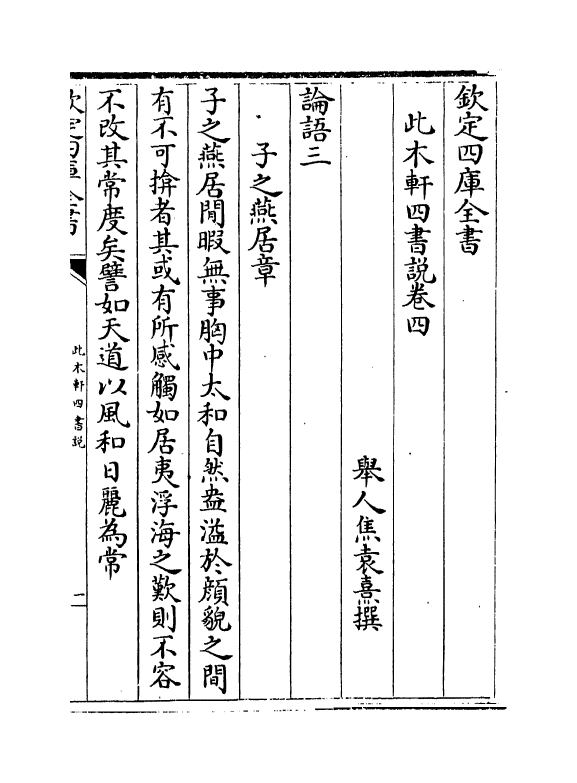 欽定四庫全書
此木軒四書説卷四
舉人焦袁熹撰
論語三
子之燕居章
子之燕居閒暇無事胸中太和自然盎溢於顔貌之間
有不可揜者其或有所感觸如居夷浮海之歎則不容
不改其常度矣譬如天道以風和日麗為常
欽定四庫全書
此木軒四書説